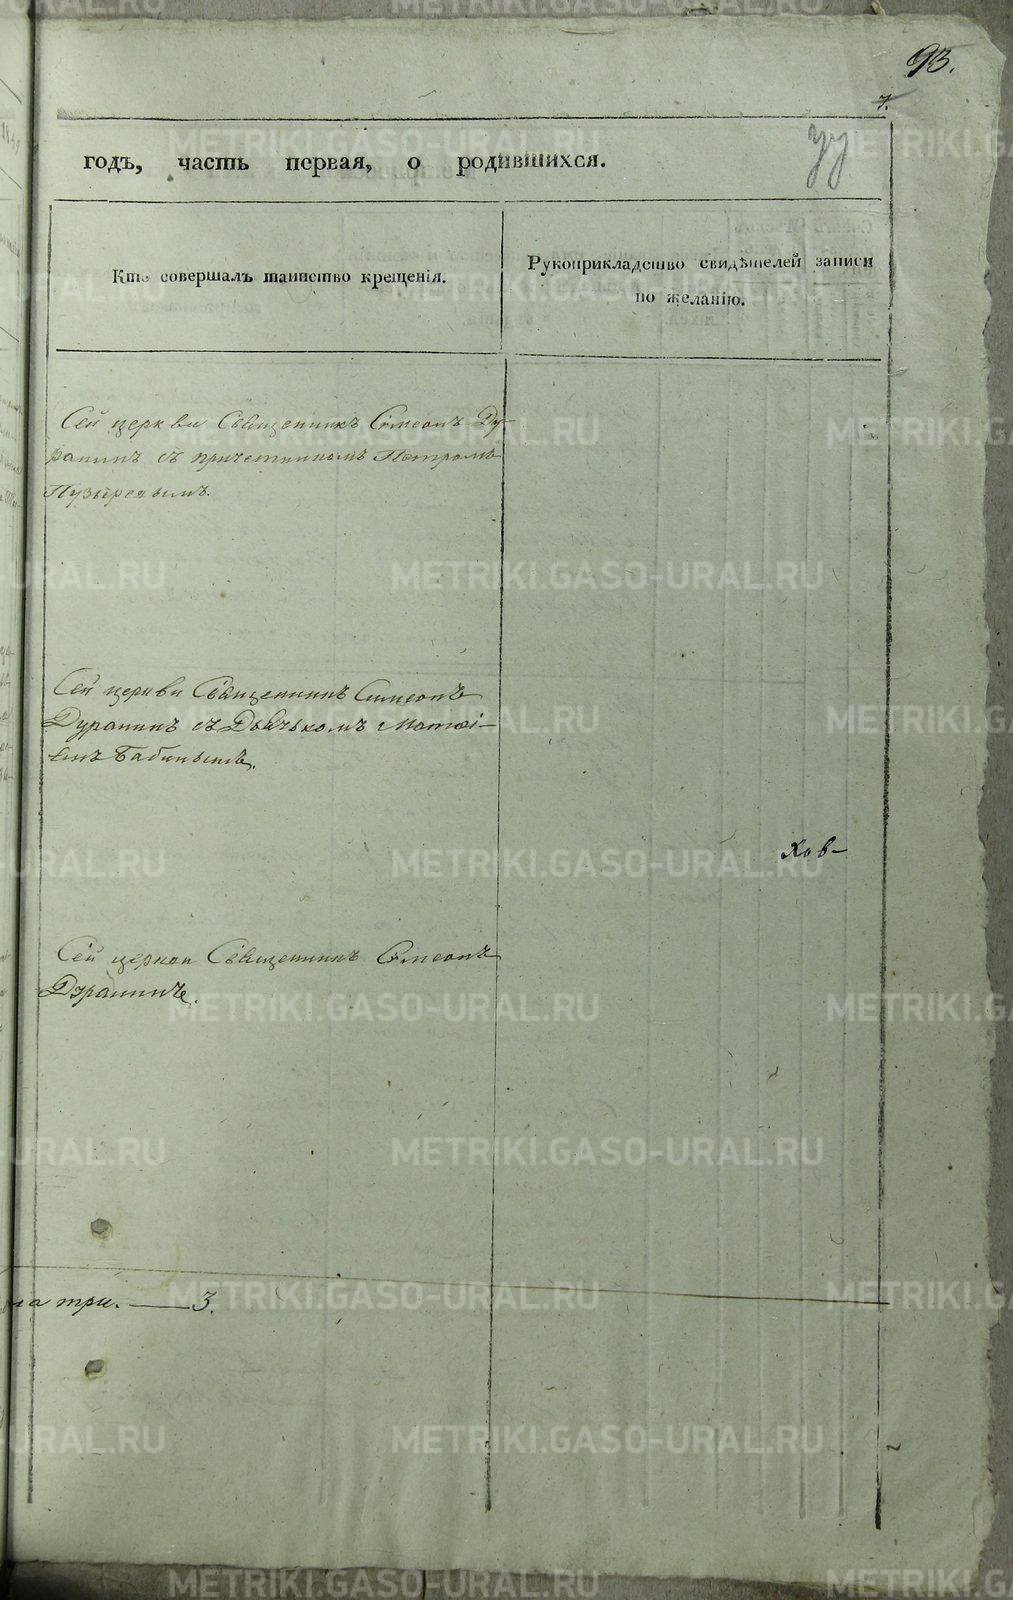 93.
7.
годъ, часть первая, о родившихся.
Кто совершалъ таинство крещенія.
Рукоприкладство свидѣтелей записи
по желанію.
Сей церкви Священникъ Симеонъ Ду-
ранинъ съ причетникомъ Петромъ
Пузыревымъ.
Сей церкви Священникъ Симеонъ
Дуранинъ съ Дьячькомъ Матѳі-
емъ Бабинымъ.
Хов-
Сей церкви Священникъ Симеонъ
Дуранинъ.
три. — 3.
METRIKI.GASO-URAL.RU